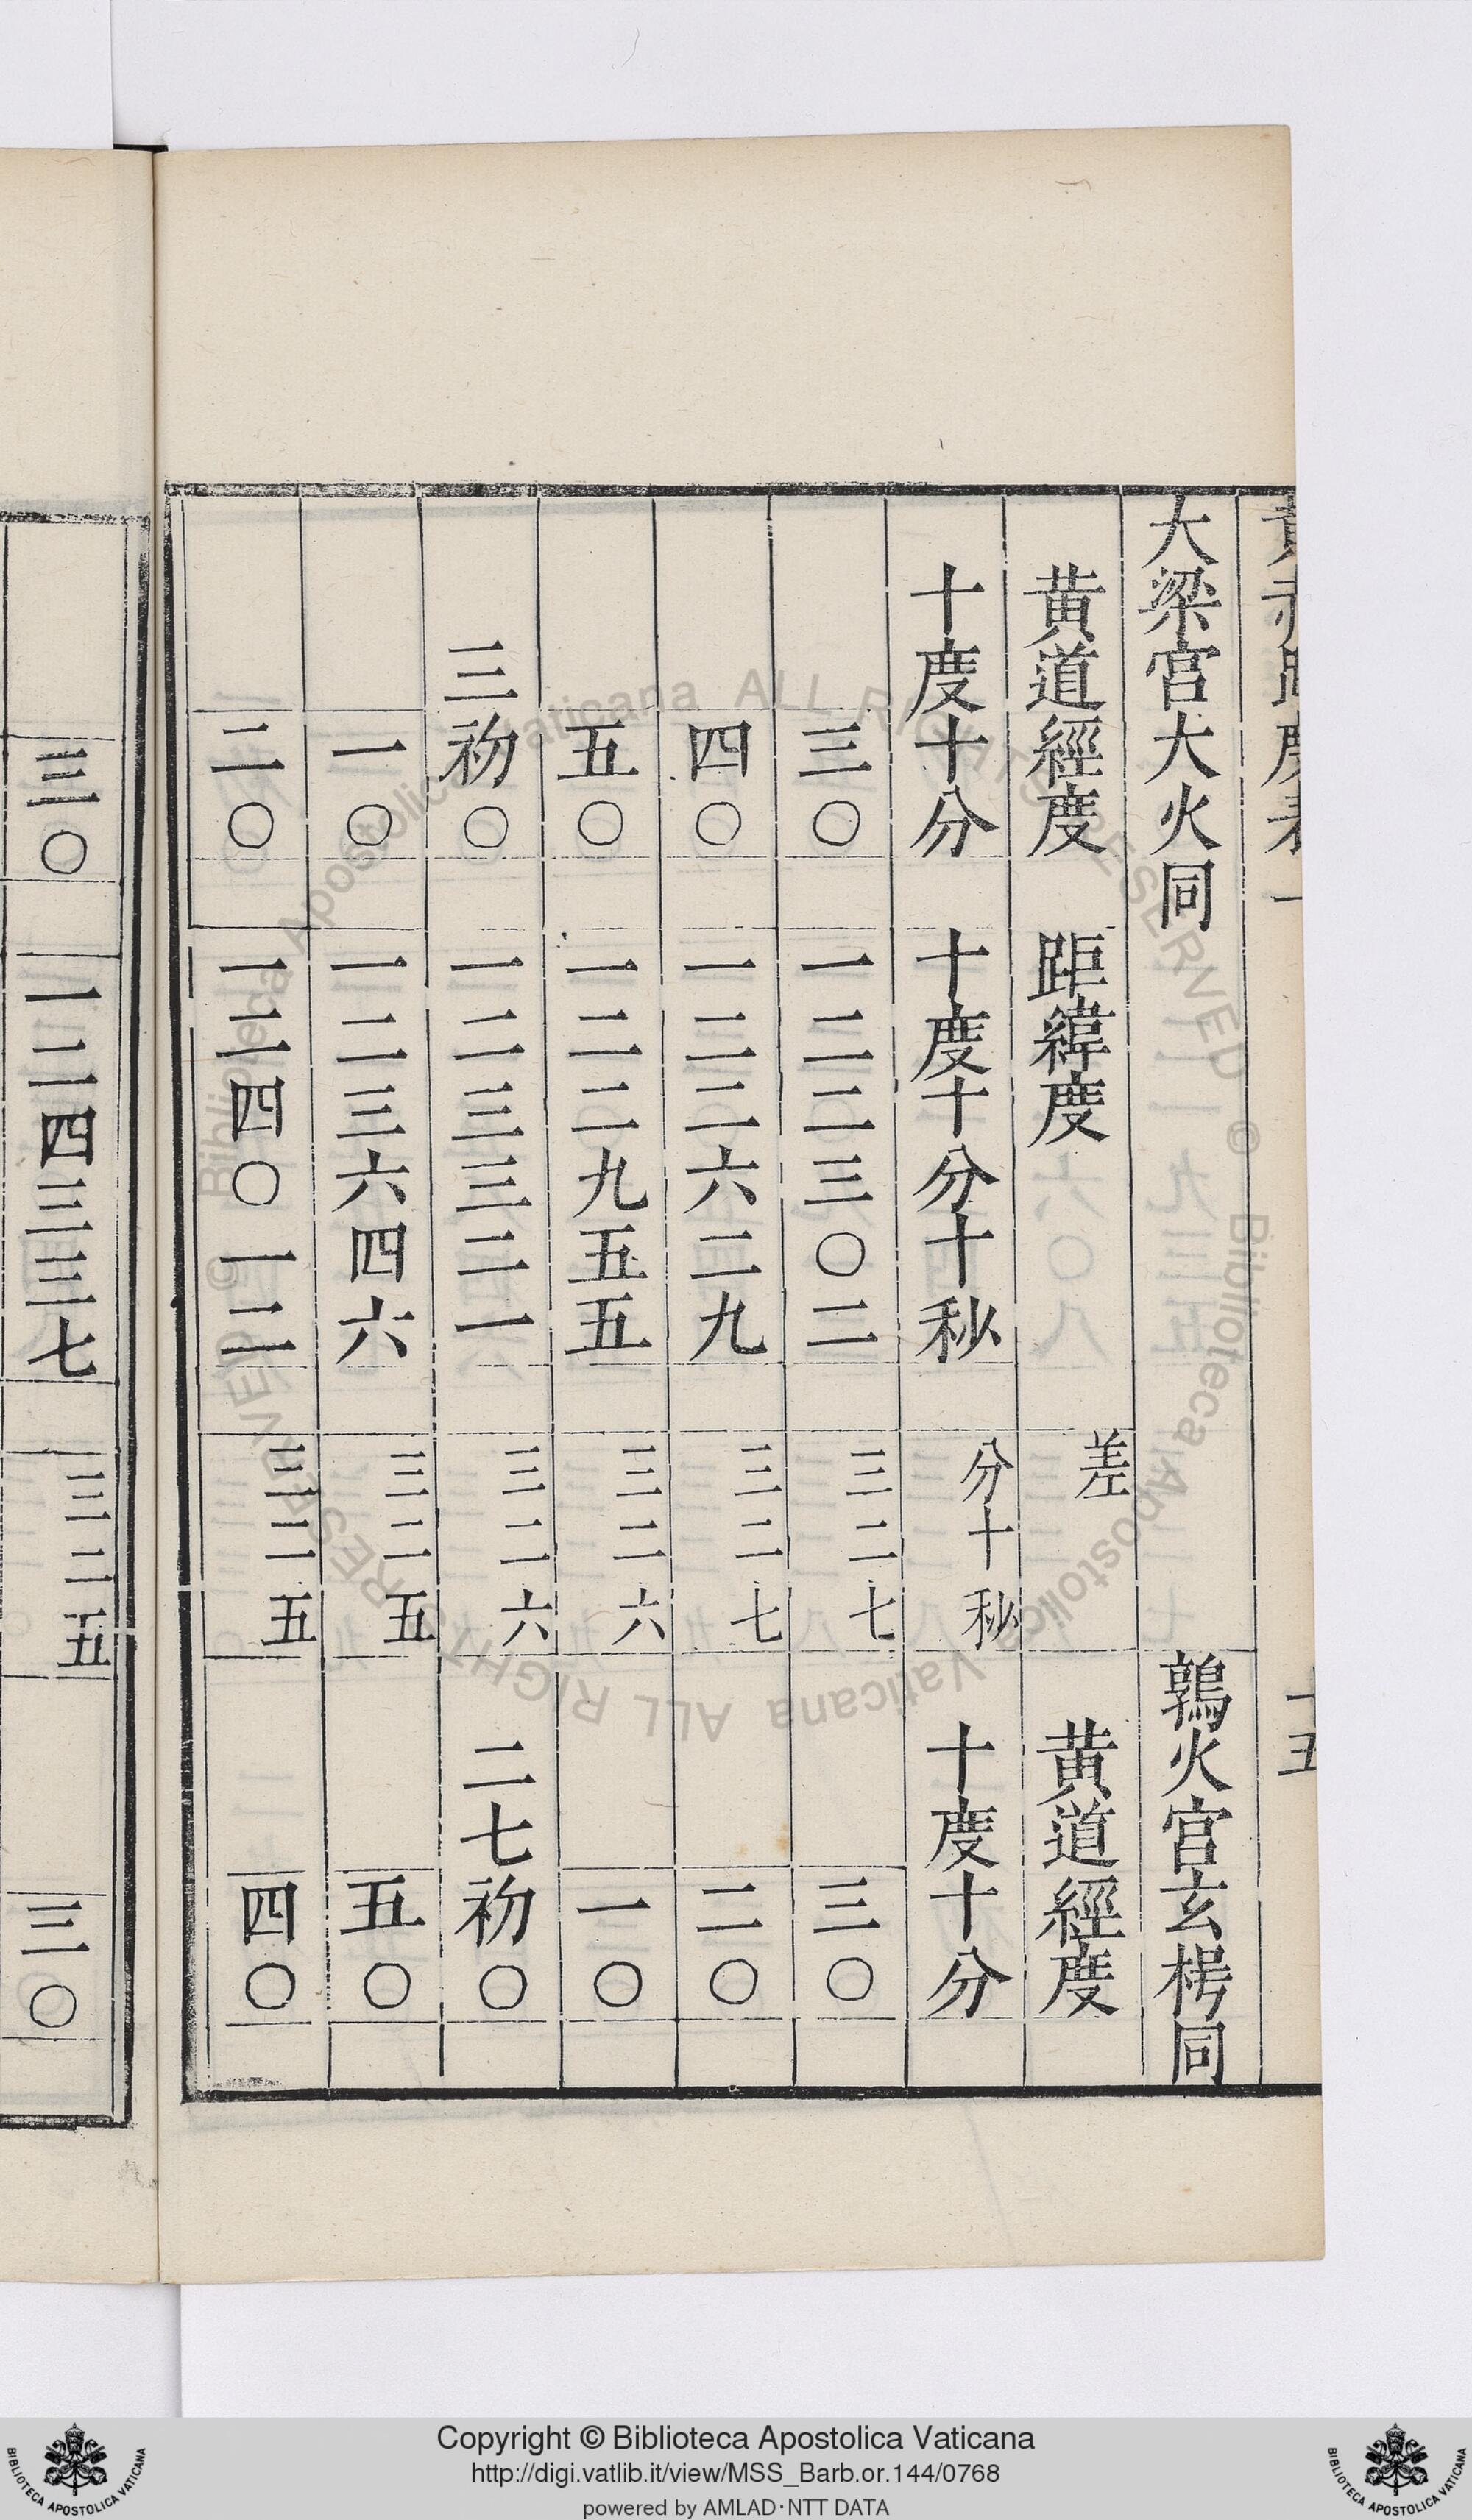 黃赤距度表一 十五
大梁宮大火同 鶉火官玄枵同
黃道經度 距緯度 差 黃道經度
十度十分 十度十分十秒 分十秒 十度十分
三〇 一二二三〇二 三二七 三〇
四〇 一二二六二九 三二七 二〇
五〇 一二二九五五 三二六 一〇
三初〇 一二三三二一 三二六 二七初〇
一〇 一二三六四六 三二五 五〇
二〇 一二四〇一二 三二五 四〇
三〇 一二四三三七 三二五 三〇
© Biblioteca Apostolica Vaticana ALL RIGHTS RESERVED
© Biblioteca Apostolica Vaticana ALL RIGHTS RESERVED
Copyright © Biblioteca Apostolica Vaticana
http://digi.vatlib.it/view/MSS_Barb.or.144/0768
powered by AMLAD·NTT DATA
BIBLIOTECA APOSTOLICA VATICANA
BIBLIOTECA APOSTOLICA VATICANA